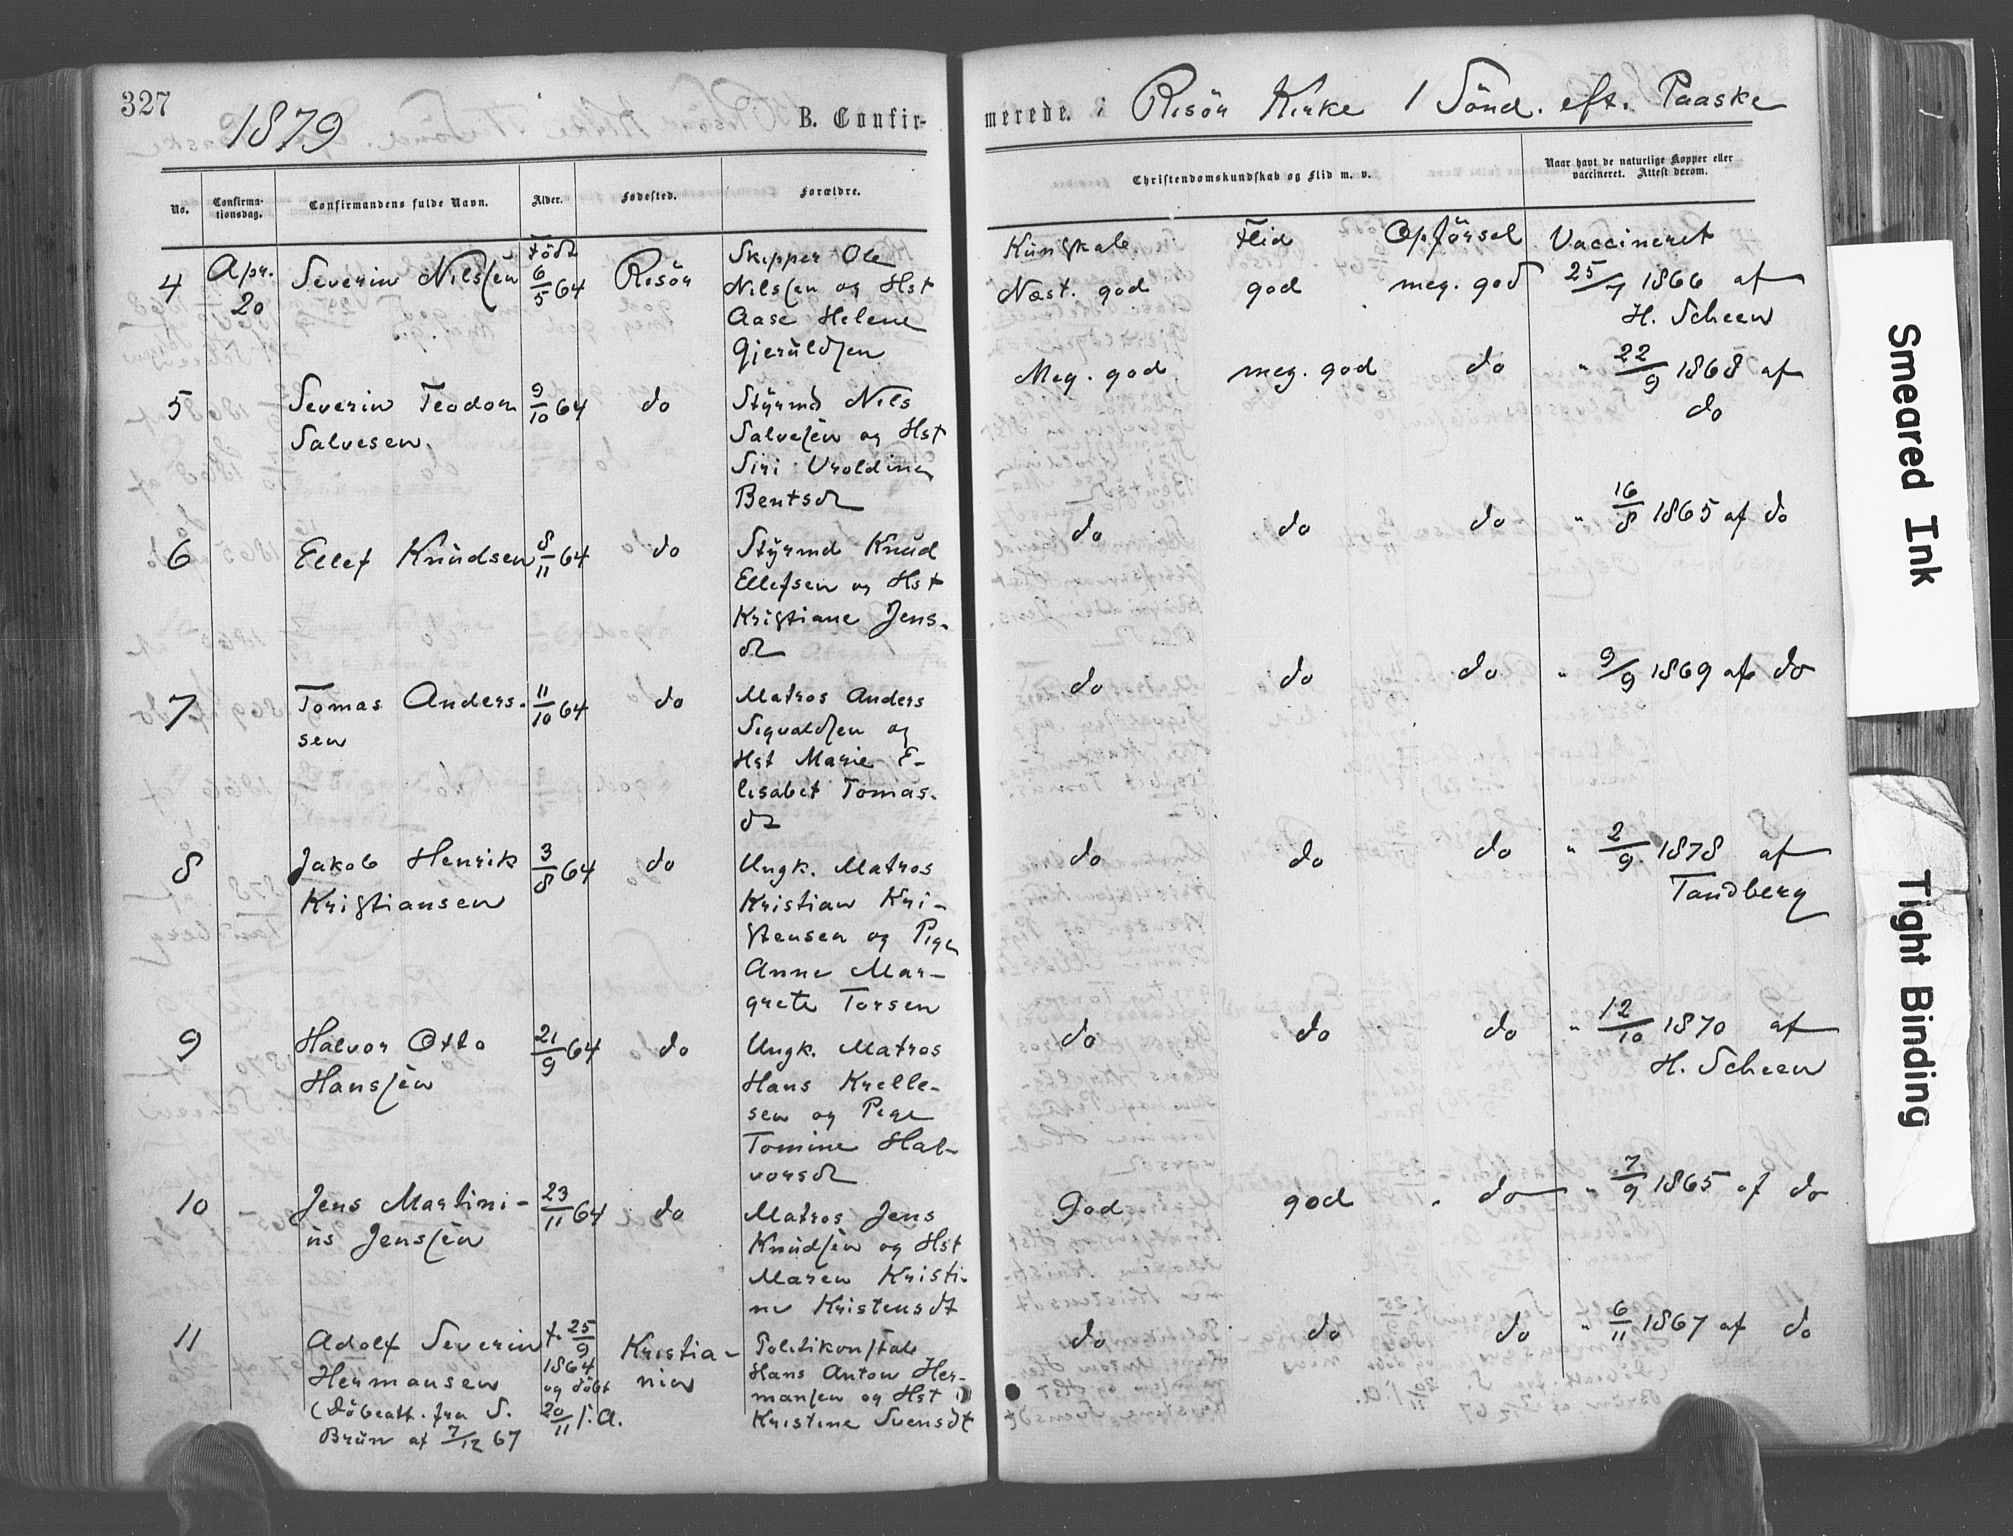 327
1879
B. Confir-
merede. i Risör Kirke 1 Sönd. eft. Paaske
No.
Confirma-
tionsdag.
Confirmandens fulde Navn.
Alder.
Fødested.
Forældre.
Christendomskundskab og Flid m. v.
Naar havt de naturlige Kopper eller
vaccineret. Attest derom.
Kundskab Flid Opförsel Vaccineret
4 Apr. 20 Severin Nilssen Född 6/5 64 Risör
Skipper Ole
Nilssen og Hst
Aase Helene
Gjeruldsen
Næst. god god meg. god 25/7 1866 af
H. Scheen
5 Severin Teodor
Salvesen
9/10 64 do
Styrmd Nils
Salvesen og Hst
Siri Uroldine
Bentsdt
Meg. god meg. god do " 22/9 1868 af
do
6 Ellef Knudsen 8/11 64 do
Styrmd Knud
Ellefsen og Hst
Kristiane Jens-
dt
do do do " 16/8 1865 af do
7 Tomas Anders-
sen
11/10 64 do
Matros Anders
Sigvaldsen og
Hst Marie E-
lisabet Tomas-
dt
do do do " 9/9 1869 af do
8 Jakob Henrik
Kristiansen
3/8 64 do
Ungk. Matros
Kristian Kri-
stensen og Pige
Anne Mar-
grete Torsen
do do do " 2/9 1878 af
Tandberg
9 Halvor Otto
Hanssen
21/9 64 do
Ungk. Matros
Hans Krelle-
sen og Pige
Tomine Hal-
vorsdt
do do do " 12/10 1870 af
H. Scheen
10 Jens Martini-
us Jenssen
23/11 64 do
Matros Jens
Knudsen og Hst
Maren Kristi-
ne Kristensdt
God god do " 7/9 1865 af do
11 Adolf Severin
Hermansen
(Döbeatt. fra S.
Brun af 7/12 67
f. 25/9
1864
og döbt
20/11 s. A.
Kristia-
nia
Politikonstabe
Hans Anton Her-
mansen og Hst
Kristine Svensdt
do do do " 6/11 1867 af do
Smeared Ink
Tight Binding